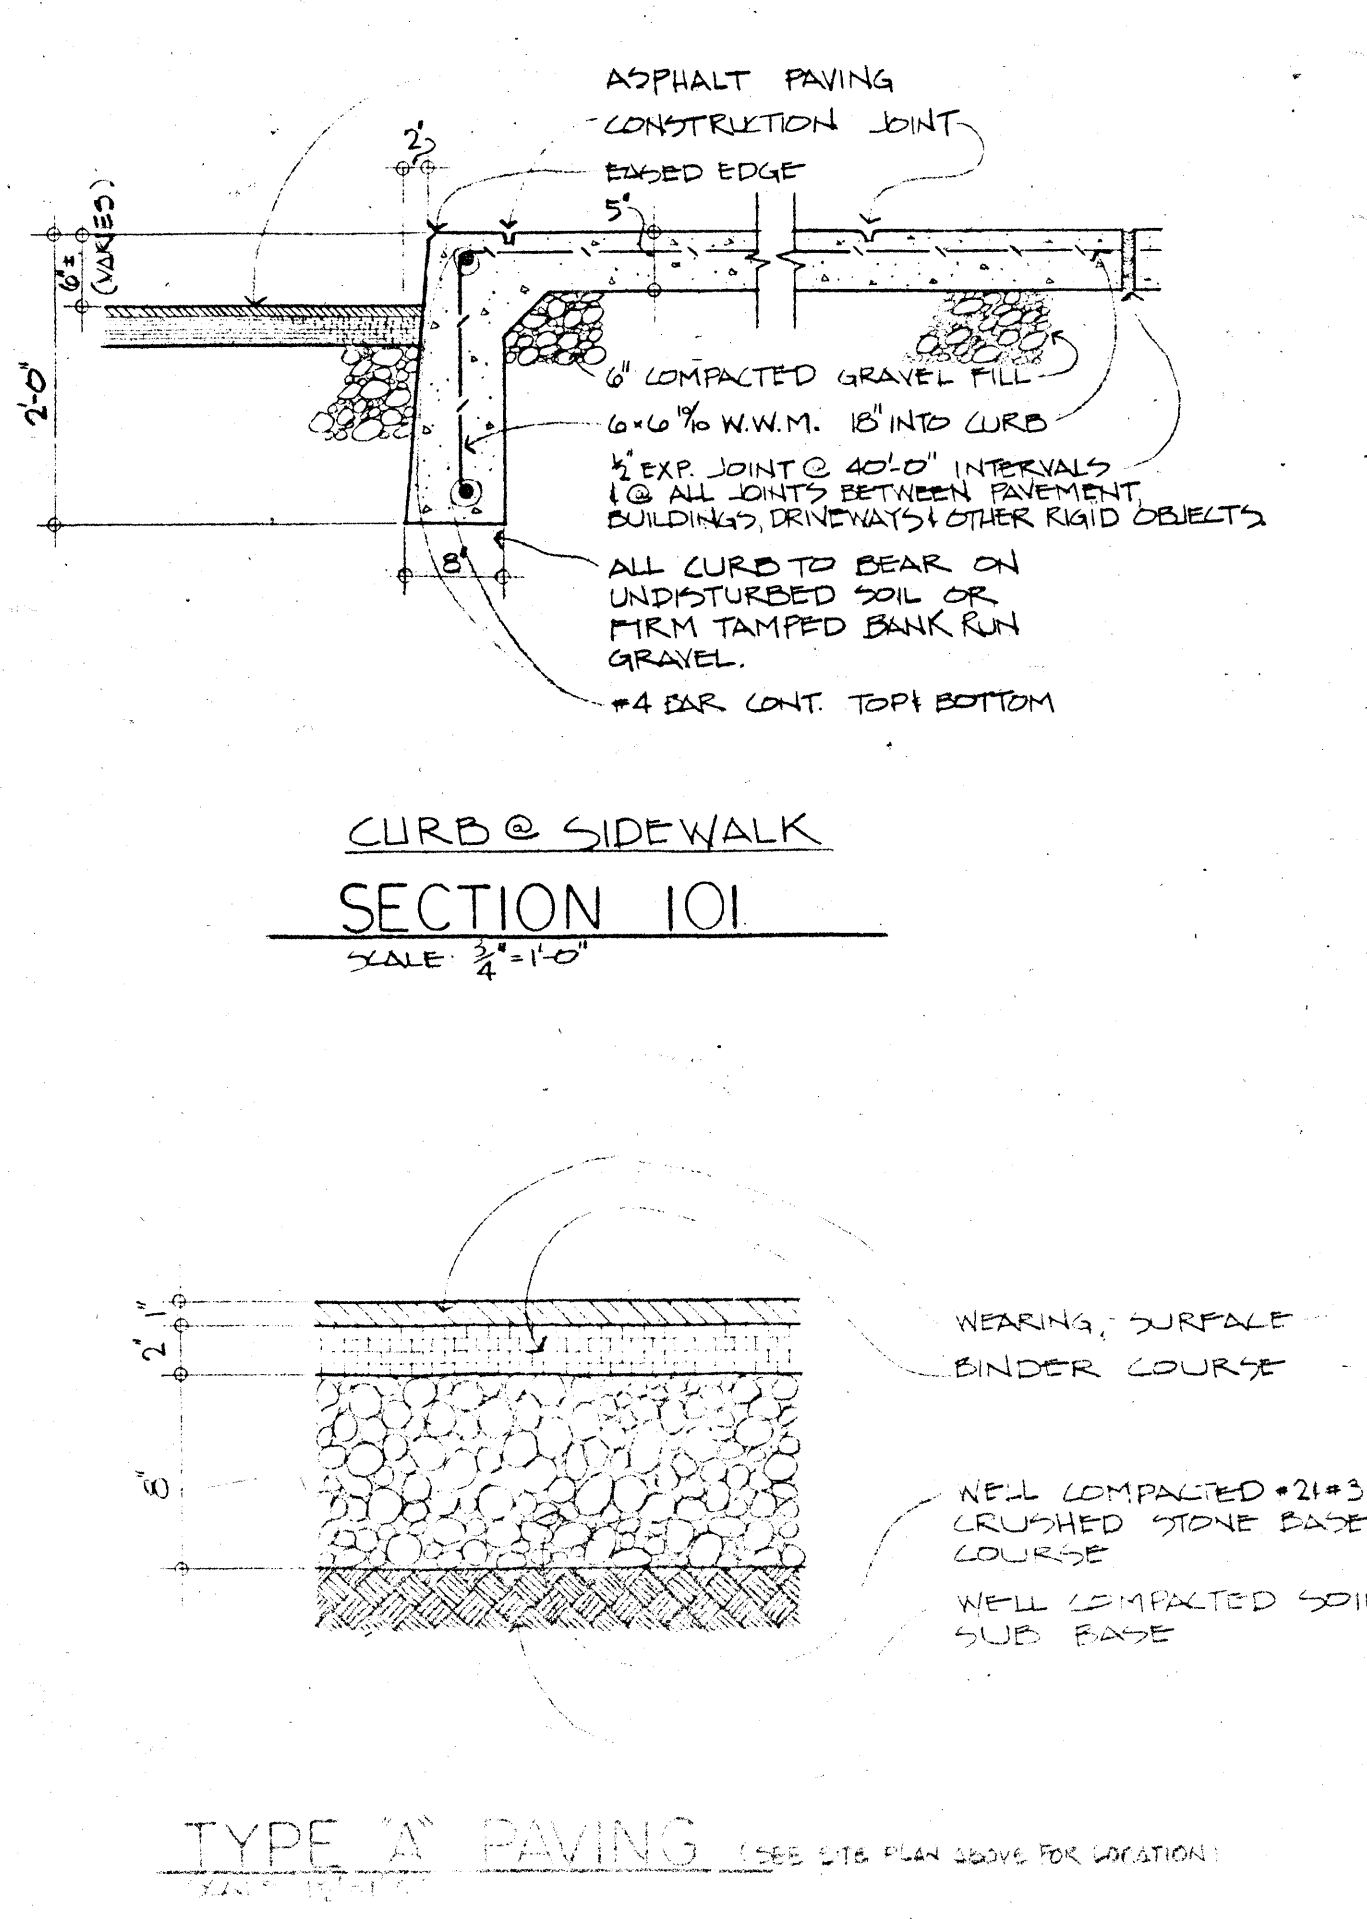 ASPHALT PAVING
CONSTRUCTION JOINT
EASED EDGE
2"
5"
6"± (VARIES)
2'-0"
6" COMPACTED GRAVEL FILL
6x6 10/10 W.W.M. 18" INTO CURB
½" EXP. JOINT @ 40'-0" INTERVALS
& @ ALL JOINTS BETWEEN PAVEMENT,
BUILDINGS, DRIVEWAYS & OTHER RIGID OBJECTS
8"
ALL CURB TO BEAR ON
UNDISTURBED SOIL OR
FIRM TAMPED BANK RUN
GRAVEL.
#4 BAR CONT. TOP & BOTTOM
CURB @ SIDEWALK
SECTION 101
SCALE 3/4" = 1'-0"
1"
2"
8"
WEARING SURFACE
BINDER COURSE
WELL COMPACTED #2 & #3
CRUSHED STONE BASE
COURSE
WELL COMPACTED SOIL
SUB BASE
TYPE "A" PAVING (SEE SITE PLAN ABOVE FOR LOCATION)